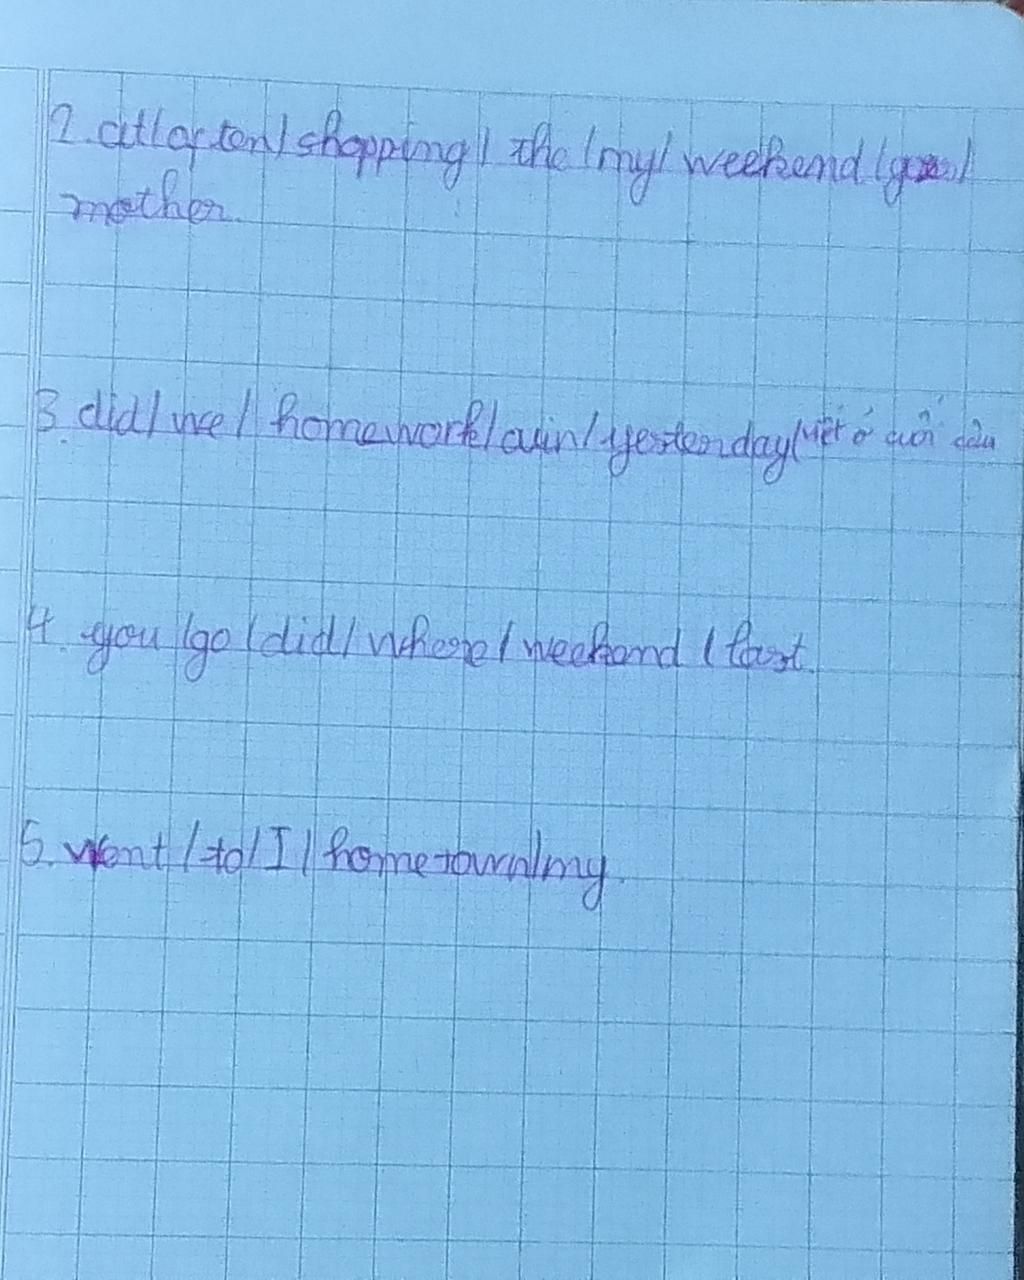 2. at/often/shopping/the/my/weekend/goes/
mother.
3. did/we/homework/our/yesterday(viết ở cuối câu
4. you/go/did/where/weekend/last.
5. went/to/I/hometown/my.